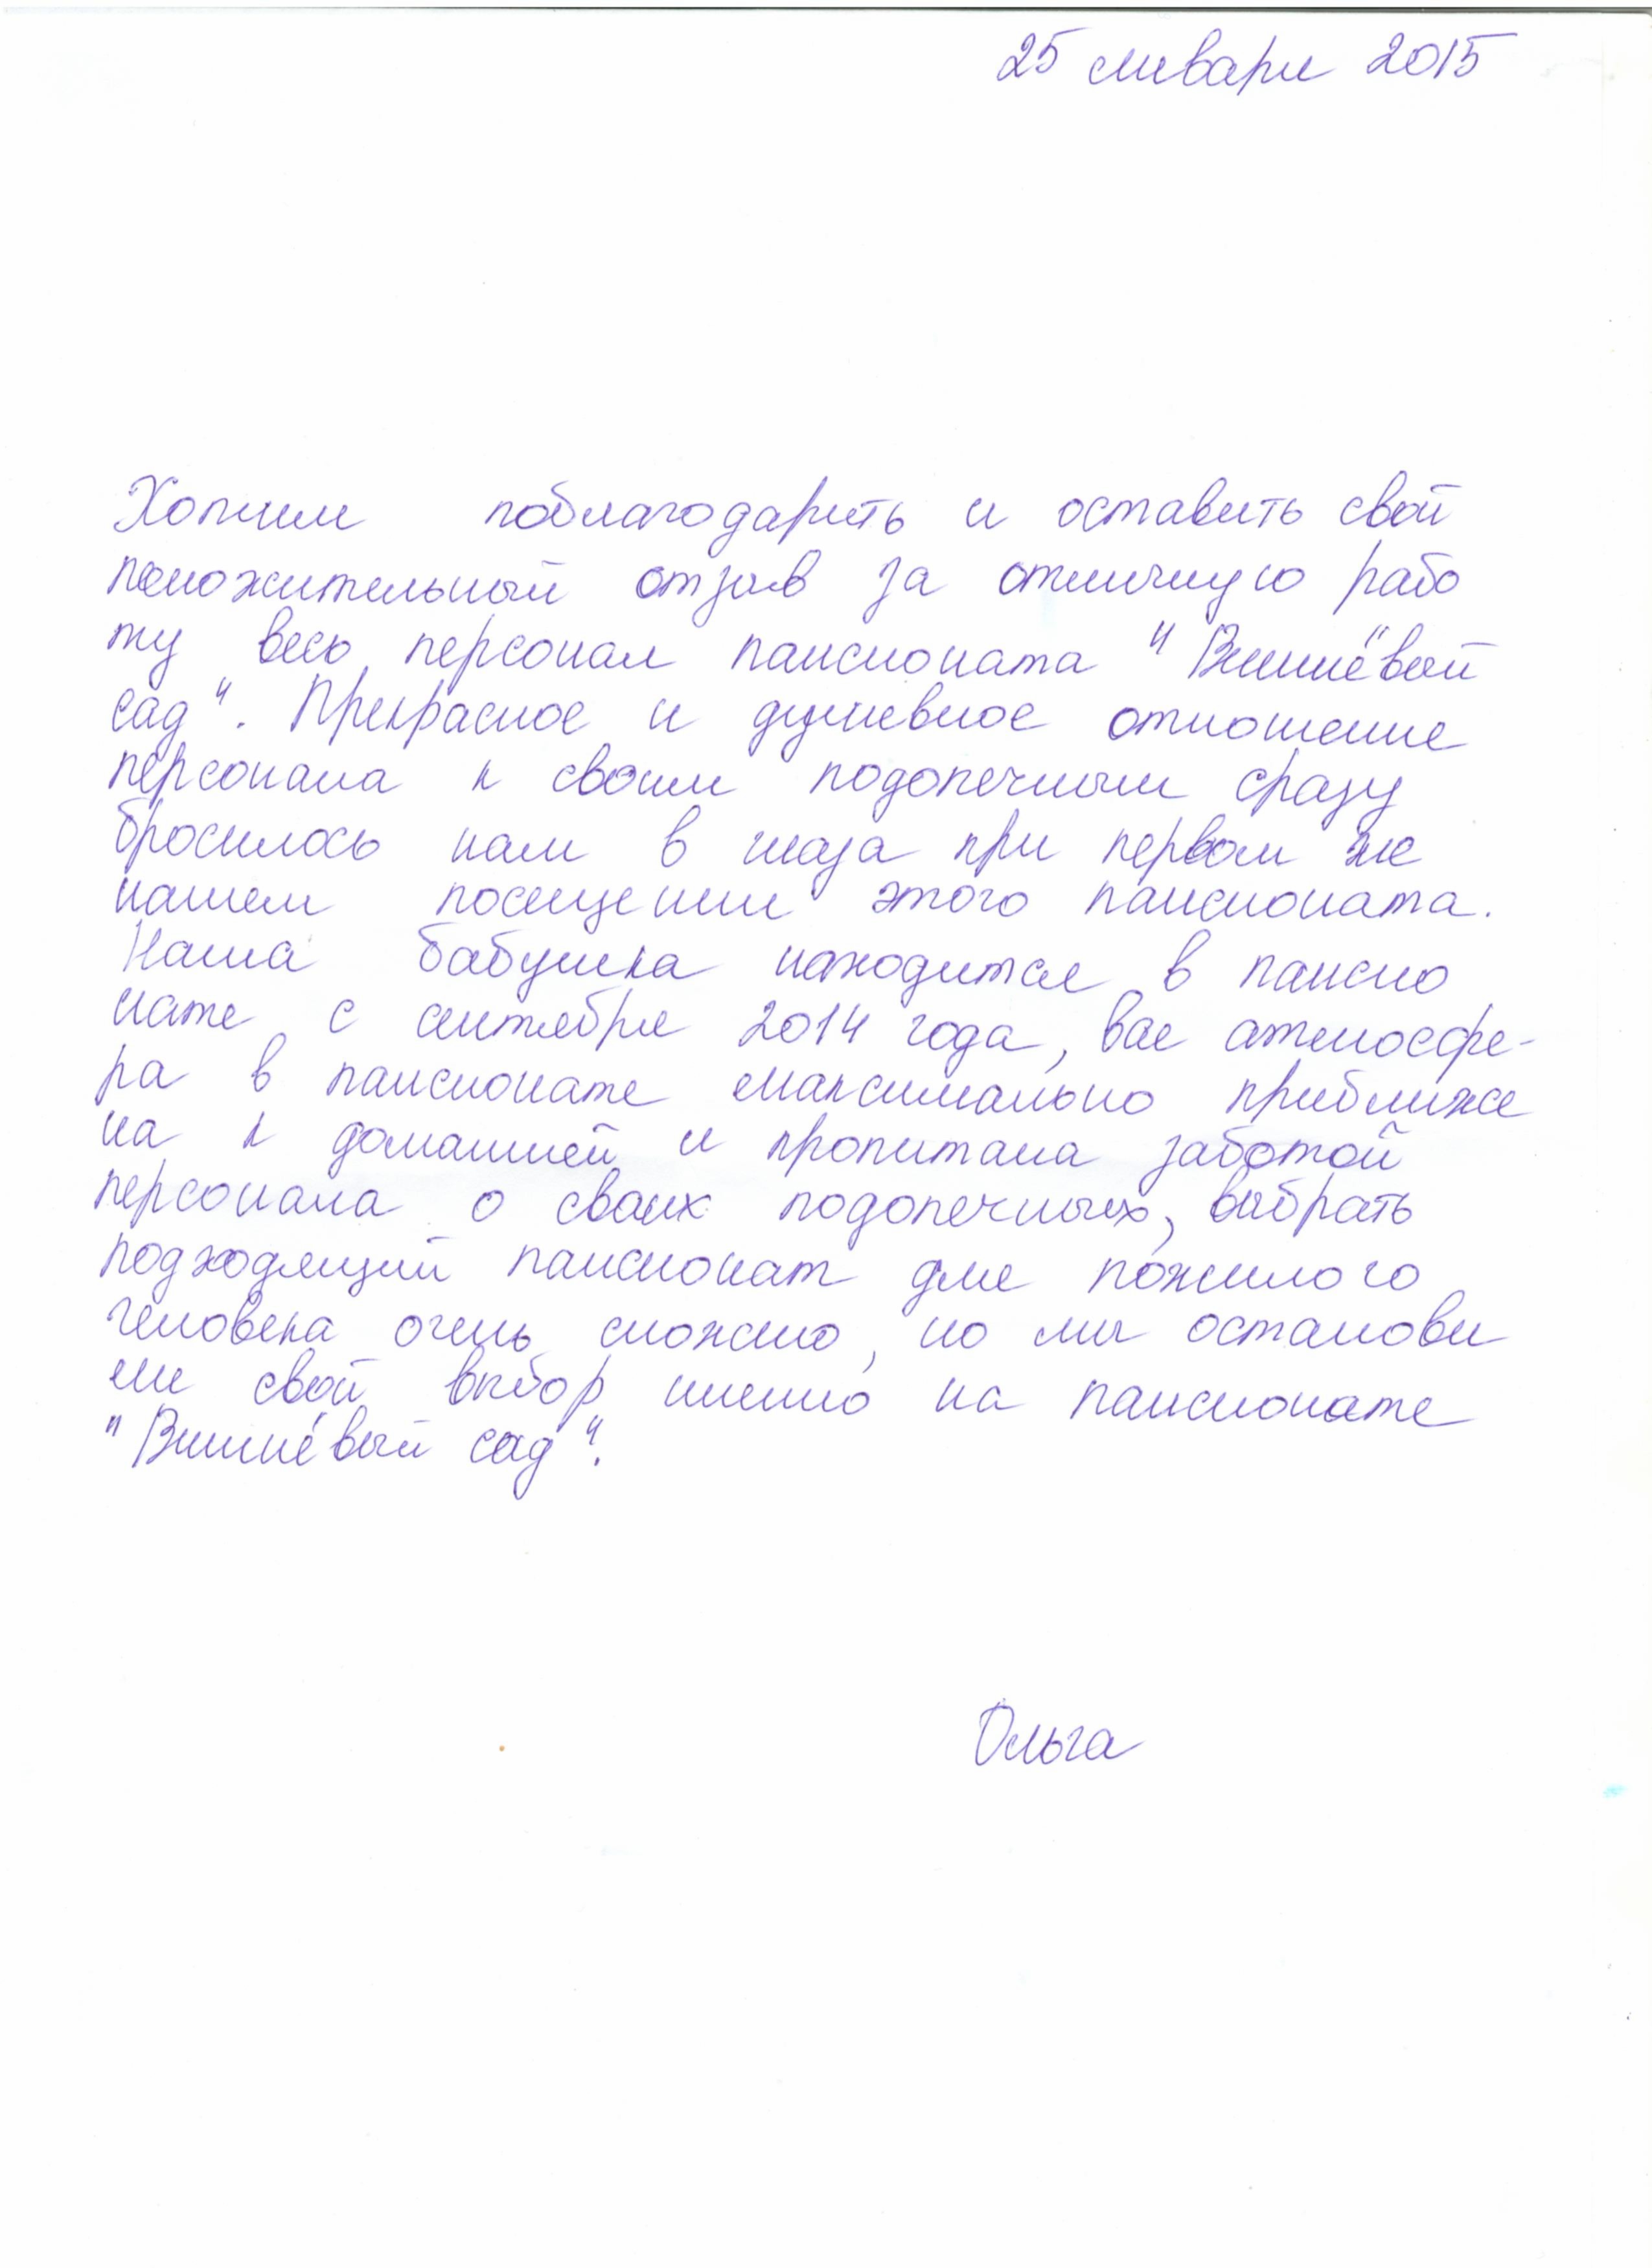 25 января 2015
Хотим поблагодарить и оставить свой
положительный отзыв за отличную рабо
ту весь персонал пансионата "Вишнёвый
сад". Прекрасное и душевное отношение
персонала к своим подопечным сразу
бросилось нам в глаза при первом же
нашем посещении этого пансионата.
Наша бабушка находится в пансио
нате с сентября 2014 года, вся атмосфе-
ра в пансионате максимально приближе
на к домашней и пропитана заботой
персонала о своих подопечных, выбрать
подходящий пансионат для пожилого
человека очень сложно, но мы останови
ли свой выбор именно на пансионате
"Вишнёвый сад".
Ольга